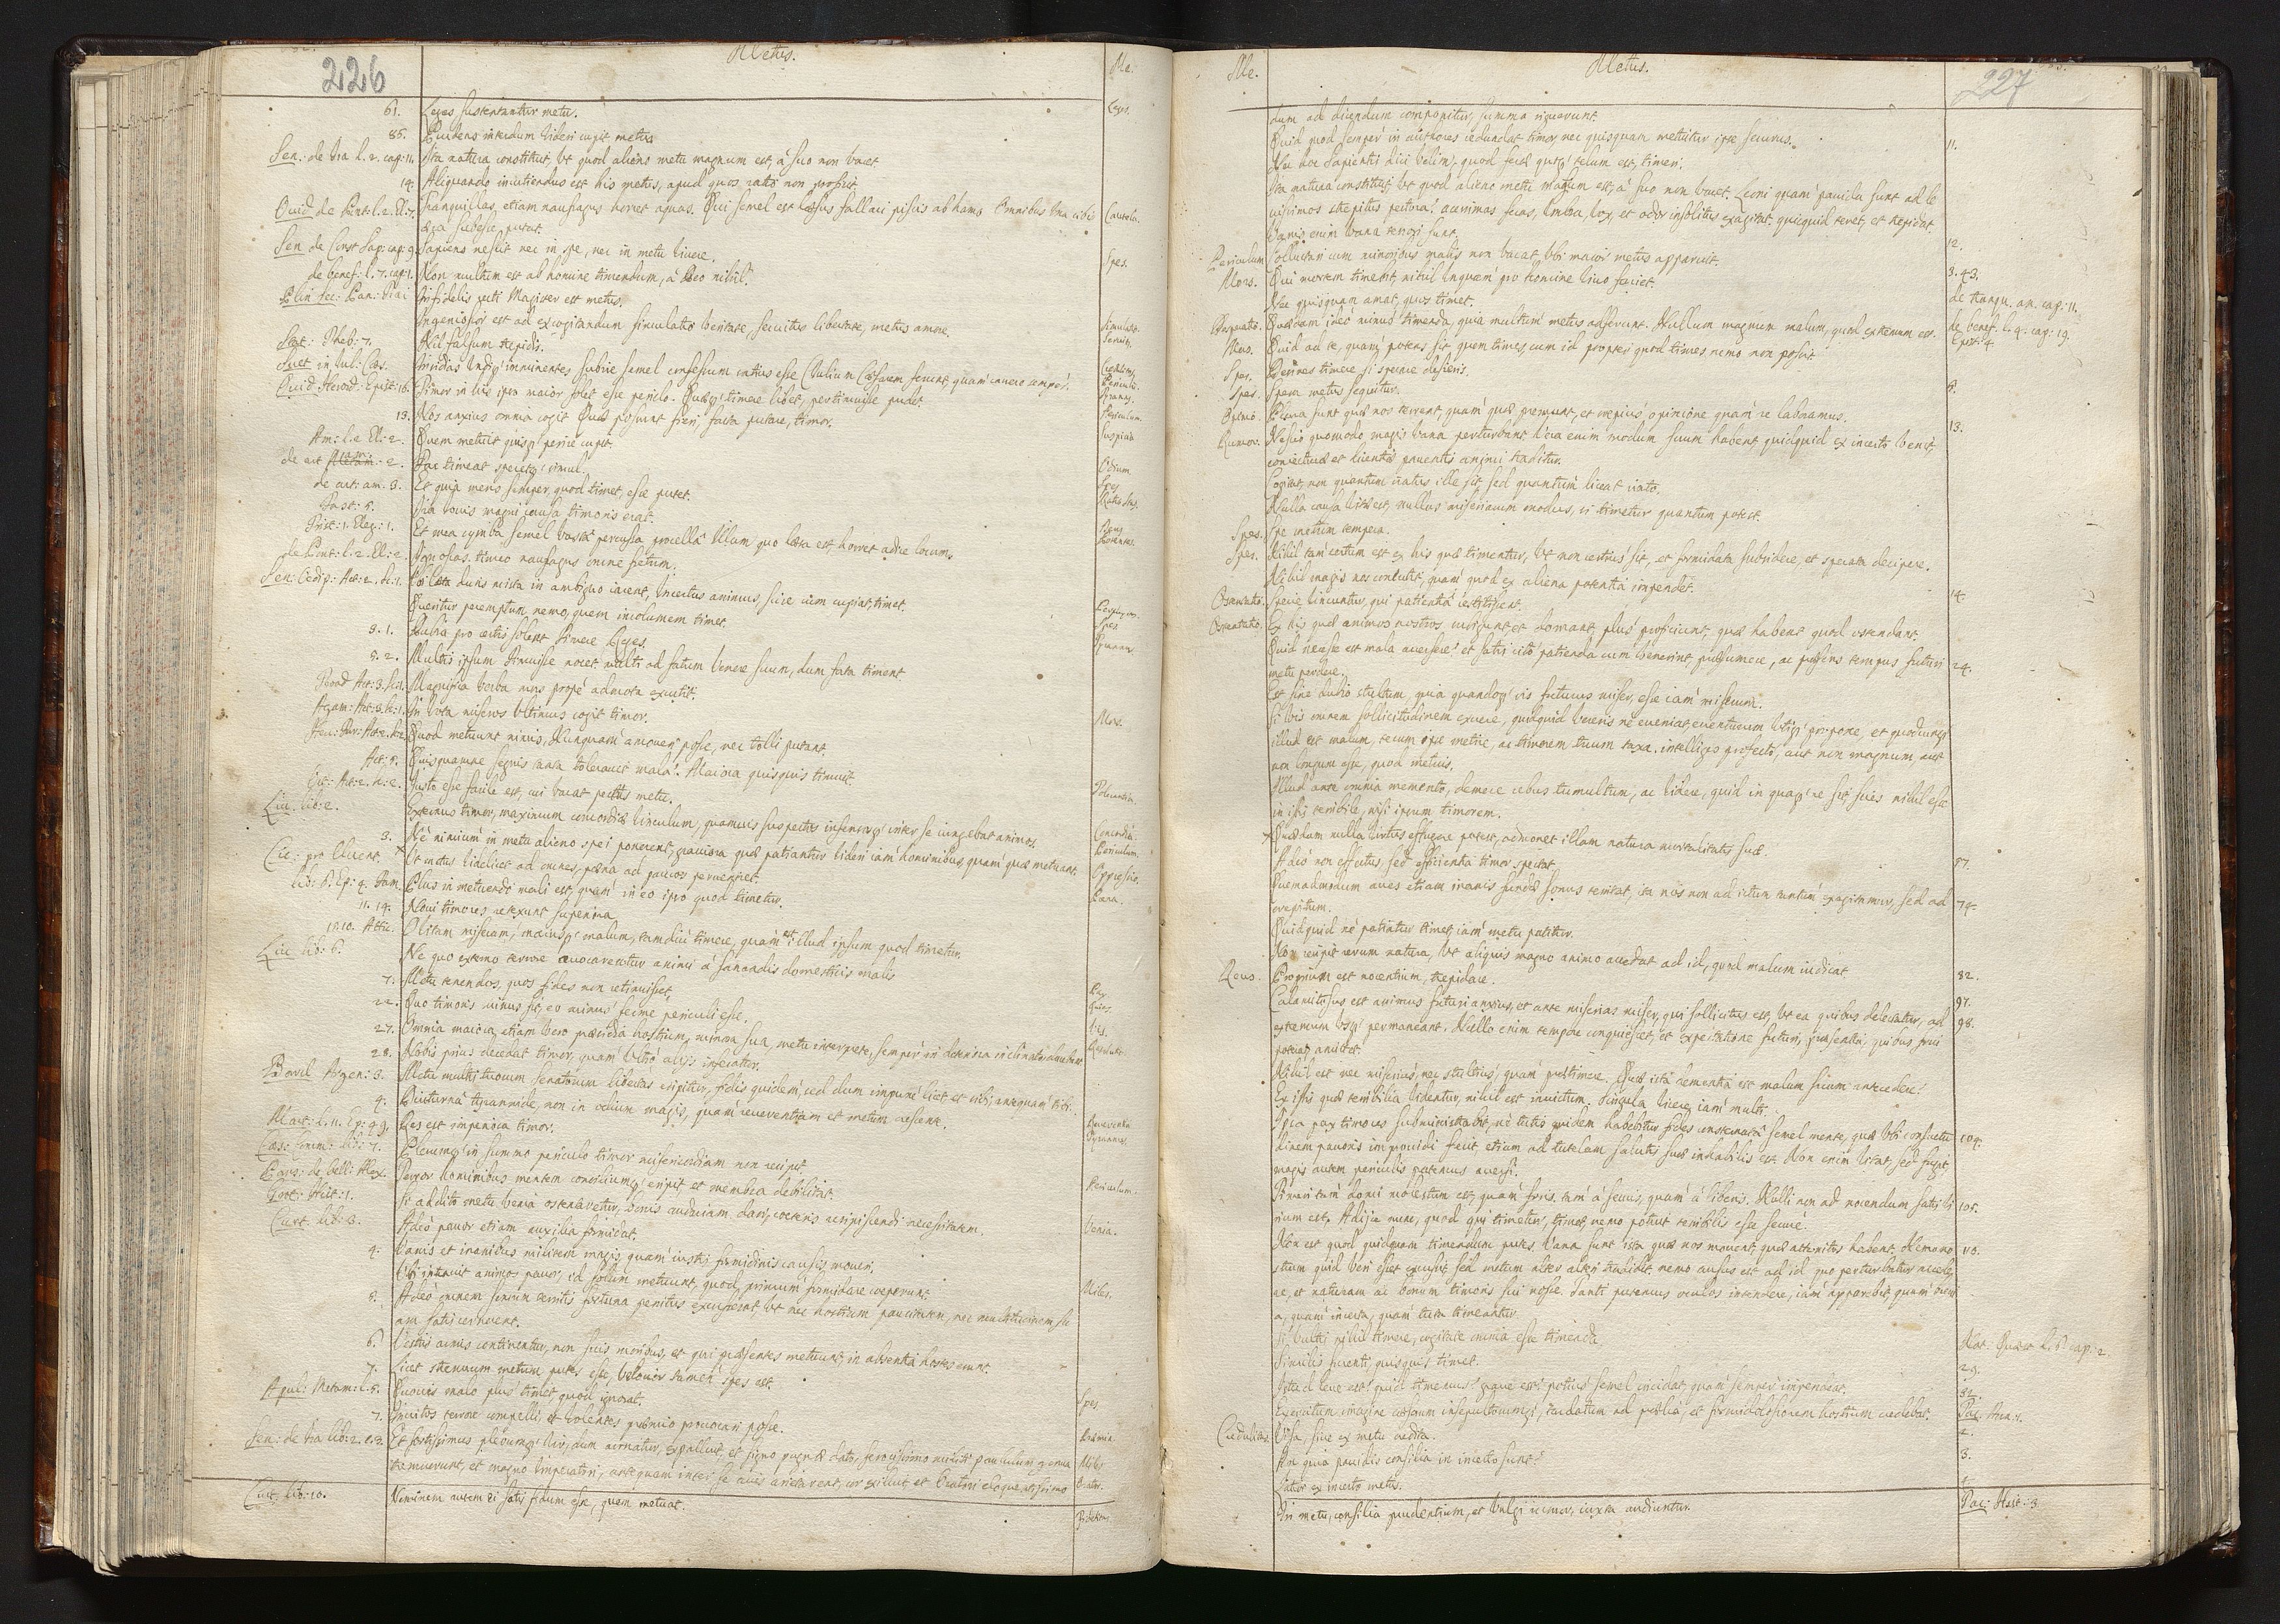 226
Metus.
Me.
61. Leges sustentantur metu. Leges.
85. Pudens interdum videri cupit metus
Sen: de Ira l. 2. cap: 11. Ita natura constituit, ut quod alieno metu magnum est, à suo non vacet
14. Aliquando incutiendus est his metus, apud quos ratio non proficit
Ovid de Pont: l. 2. El: 7. Tranquillas etiam naufragus horret aquas. Qui semel est læsus fallaci piscis ab hamo Omnibus una cibis Cautela.
æra subesse putat.
Sen de Const Sap: cap: 9. Sapiens nescit nec in spe, nec in metu vivere. Spes.
de benef: l. 7. cap: 1. Non multum est ab homine timendum, à Deo nihil.
Plin sec: Pan: Trai Infidelis recti Magister est metus.
Ingeniosior est ad excogitandum simulatio veritate, servitus libertate, metus amore. Simulatio. Servit.
Stat: Theb: 7. Nil falsum trepidis.
Suet in Jul: Cæs. Insidias undiq' imminentes subire semel confessum satius esse (Julium Cæsarem ferunt, quam cavere semper).
Ovid Heroid: Epist: 16. Timor in his ipso maior solet esse periclo. Quæq' timere libet, pertimuisse pudet.
13. Nos anxius omnia cogit Quæ possunt fieri, facta putare, timor. Periculum.
Am: l. 2 El: 2. Quem metuit quisq' perire cupit. Suspicio
de art am: 2. Fac timeat speretq' simul. Odium.
de art: am. 3. Et quia mens semper, quod timet, esse putet. Spes
Fast: 5. Ira Iovis magni causa timoris erat.
Trist: 1. Eleg: 1. Et mea cymba semel vasta percussa procella Illum quo læsa est, horret adire locum.
de Pont: l. 2. El: 2. timeo naufragus omne fretum.
Sen: Œdip: Act: 2. sc: 1. Ubi læta duris mista in ambiguo iacent, Incertus animus, scire cum cupiat, timet.
Queritur peremptum nemo, quem incolumem timet.
3. 1. Dubia pro certis solent Timere Reges.
5. 2. Multis ipsum timuisse nocet, multi ad fatum Venere suum, dum fata timent
Troad Act: 3. sc: 1. Magnifica verba mors propè admota excutit.
Agam: Act: 3. sc: 1. In vota miseros ultimus cogit timor. Mors.
Quod metuunt nimis, Nunquam amoveri posse, nec tolli putant
Act: 5. Quisquamne segnis tanta toleravit mala? Maiora quisquis timuit.
Oct: Act: 2. sc: 2. Iusto esse facile est, cui vacat pectus metu.
Liv. lib: 2. Externus timor, maximum concordiæ vinculum, quamvis suspectos infensosq' inter se iungebat animos. Concordia
3. Nè nimium in metu alieno spei ponerent, graviora quæ patiantur videri iam hominibus, quam quæ metuant. Periculum.
Cic: pro Cluent. Ut metus videlicet ad omnes, pœna ad paucos perveniret.
lib: 6. Ep: 4 Fam. Plus in metuendo mali est, quam in eo ipso quod timetur. Pœna.
11. 14. Novi timores retexunt superiora
1010. Attic. O vitam miseram, maiusq' malum, tamdiu timere, quam est illud ipsum quod timetur
Liv lib: 6. Ne quo externo terrore avocarentur animi à sanandis domesticis malis
7. Metu tenendos, quos fides non retinuisset.
22. Quo timoris minus sit, eo minus ferme periculi esse.
27. Omnia maiora etiam vero præsidia hostium, minora sua, metu interprete, semper in deteriora inclinato
28. Nobis prius decedat timor, quam ultro aliis inferatur.
Barcl Argen: 3. Metu multi tuorum senatorum libertas eripitur, fidis quidem, sed dum impunè licet et sibi, antequam tibi.
4. Diuturna tyrannide, non in odium magis, quam reverentiam et metum crescent. Reverentia
Mart: l. 11. Ep: 49. Res est imperiosa timor. Tyrannis.
Cæs: Comm: lib: 7. Plerumq' in summo periculo timor misericordiam non recipit.
de bell: Alex. Terror hominibus mentem consiliumq' eripit, et membra debilitat. Periculum.
Tac: Hist: 1. Si addito metu venia ostentaretur, bonis audaciam dari, cæteris resipiscendi necessitatem. Venia.
Curt: lib: 3. Adeò pavor etiam auxilia formidat.
4. Vanis et inanibus militem magis quam iustis formidinis causis moveri.
Ubi intravit animos pavor, id solum metuunt, quod primum formidare cœperunt. Miles.
5. Adeò omnem sensum territis fortuna penitus excusserat, ut nec hostium paucitatem, nec multitudinem su
am satis cernerent.
6. Vestris armis continentur, non suis moribus, et qui præsentes metuunt, in absentia hostes erunt
7. Licet strenuum metum putes esse, velocior tamen spes est.
Apul: Metam: l. 5. Quovis malo plus timet, quod ignorat. Spes
7. Invitos terrore compelli, et volentes præmio provocari posse. Præmia
Sen: de Ira lib: 2. c: 3. Et fortissimus plerumq' vir, dum armatur, expalluit, et signo pugnæ dato, ferocissimo militi paululum genua Miles
tremuerunt, et magno Imperatori, antequam inter se acies arietarent, cor exiluit et Oratori eloquentissimo Orator.
Curt: lib: 10. Neminem autem ei satis fidum esse, quem metuat. Fidelitas.
Me.
Metus.
227
dum ad dicendum componitur, summa riguerunt.
Quid quod semper in autores redundat timor, nec quisquam metuitur ipse securus. 11.
Nec hoc Sapienti dici velim, quod feræ quoq' telum est, timeri.
Ita natura constituit, ut quod alieno metu magnum est, à suo non vacet. Leoni quam pavida sunt ad le
vissimos strepitus pectora? acerrimas feras, umbra, vox, et odor insolitus exagitat. quicquid terret, et trepidat.
Vanis enim vana terrori sunt. 12.
Periculum Colluctari cum minoribus malis non vacat, ubi maior metus apparuit. 3. 43.
Mors. Qui mortem timebit, nihil unquam pro homine vivo faciet. de tranqu. an. cap: 11.
Nec quisquam amat, quos timet. de benef. l. 4. cap: 19.
Quædam ideò minus timenda, quia multum metus adferunt. Nullum magnum malum, quod extremum est. Epist: 4
Quid ad te, quam potens sit quem times, cum id propter quod times nemo non possit.
Spes. Desines timere, si sperare desieris. 5.
Spes. Spem metus sequitur.
Opinio Plura sunt quæ nos terrent, quam quæ premunt, et sæpius opinione quam re laboramus. 13.
Rumor. Nescio quomodo magis vana perturbant. Vera enim modum suum habent, quidquid ex incerto venit,
coniecturæ et licentiæ paventis animi traditur.
Cogitat, non quantum iratus ille sit, sed quantum liceat irato.
Nulla causa vitæ est, nullus miseriarum modus, si timetur quantum potest.
Spes. Spe metum tempera.
Spes. Nihil tam certum est ex his quæ timentur, ut non certius sit, et formidata subsidere, et sperata decipere.
Nihil magis nos concutit, quam quod ex aliena potentia impendet. 14.
Ostentatio. Specie vincuntur, qui patientia restitissent.
Ostentatio. Ex his quæ animos nostros subigunt et domant, plus proficiunt, quæ habent quod ostendant.
Quid necesse est mala accersere? et satis cito patienda cum venerint, præsumere, ac præsens tempus futuri 24.
metu perdere.
Est sine dubio stultum quia quandoq' sis futurus miser, esse iam miserum.
Si vis omnem sollicitudinem exuere, quidquid vereris ne eveniat eventurum utiq' propone, et quodcunq'
illud est malum, tecum ipse metire, ac timorem tuum taxa. intelliges profecto, aut non magnum, aut
non longum esse, quod metuis.
Illud ante omnia memento, demere rebus tumultum, ac videre, quid in quaq' re sit, scies nihil esse
in istis terribile, nisi ipsum timorem.
Quædam nulla virtus effugere potest, admonet illam natura mortalitatis suæ. 57.
Adeò non effectus, sed efficientia timor spectat.
Quemadmodum aves etiam inanis fundæ sonus territat, ita nos non ad ictum tantum exagitamur, sed ad 74.
crepitum.
Quidquid ne patiatur timet, iam metu patitur.
Non recipit rerum natura, ut aliquis magno animo accedat ad id, quod malum iudicat. 82.
Reus. Proprium est nocentium, trepidare. 97.
Calamitosus est animus futuri anxius, et ante miserias miser, qui sollicitus est, ut ea quibus delectatur, ad 98.
extremum usq' permaneant. Nullo enim tempore conquiescet, et expectatione futuri, præsentia, quibus frui
poterat, amittet.
Nihil est nec miserius, nec stultius, quam prætimere. Quæ ista dementia est malum suum antecedere?
Ex istis quæ terribilia videntur, nihil est invictum. Singula vicere iam multi.
Ipsa pax timores subministrabit, nè tutis quidem habebitur fides consternata semel mente, quæ ubi consuetu 104.
dinem pavoris improvidi fecit, etiam ad tutelam salutis suæ inhabilis est. Non enim vitat, sed fugit,
magis autem periculis patemus aversi.
Timeri tam domi molestum est, quam foris, tam à servis, quam à liberis. Nulli non ad nocendum satis vi 105.
rium est. Adiice nunc, quod qui timetur, timet, nemo potuit terribilis esse securè.
Non est quod quidquam timendum putes. Vana sunt ista quæ nos movent, quæ attonitos habent. Nemo no 110.
strum quid veri esset excussit, sed metum alter alteri tradidit. nemo ausus est ad id quo perturbatur accede
re, et naturam ac bonum timoris sui nosse. Tanti putemus oculos intendere, iam apparebit, quam brevi
a, quam incerta, quam tuta timeantur.
Si vultis nihil timere, cogitate omnia esse timenda. Nat: Quæst l. 6 cap: 2.
Similis furenti, quisquis timet. 29.
Istud leve est? quid timemus? grave est? potius semel incidat, quam semper impendeat. 32.
Exercitum imagine cæsorum insepultorumq', tardatum ad prælia, et formidolosiorem hostium credebat. Tac: Ann. 1.
Credulitas. Visa, sive ex metu credita. 2.
An quia pavidis consilia in incerto sunt? 3.
Latior ex incerto metus. 4.
In metu, consilia prudentium, et vulgi rumor, iuxta audiuntur. Tac: Hist: 3